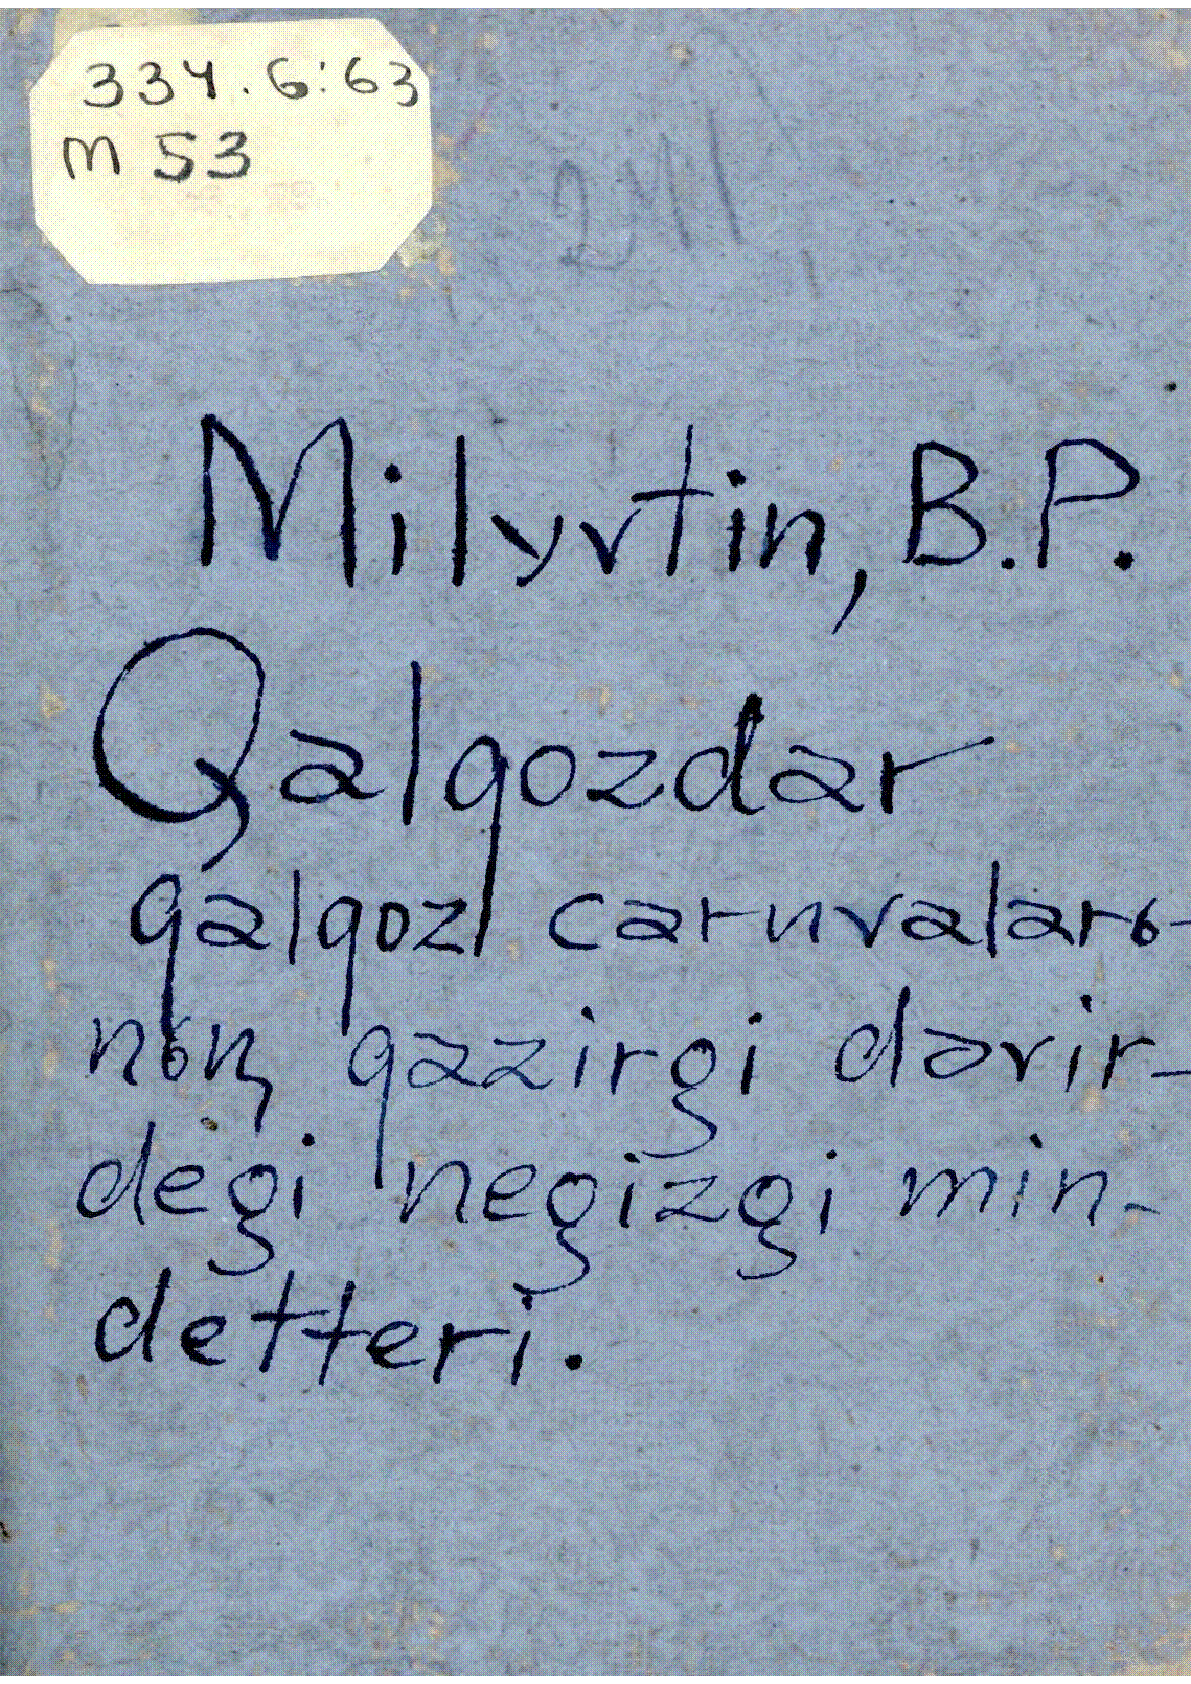 334.6:63
M 53
241
Milyvtin, B.P.
Qalqozdar
qalqozь caruvalarь-
nьꞑ qazirgi dəvir-
degi negizgi min-
detteri.